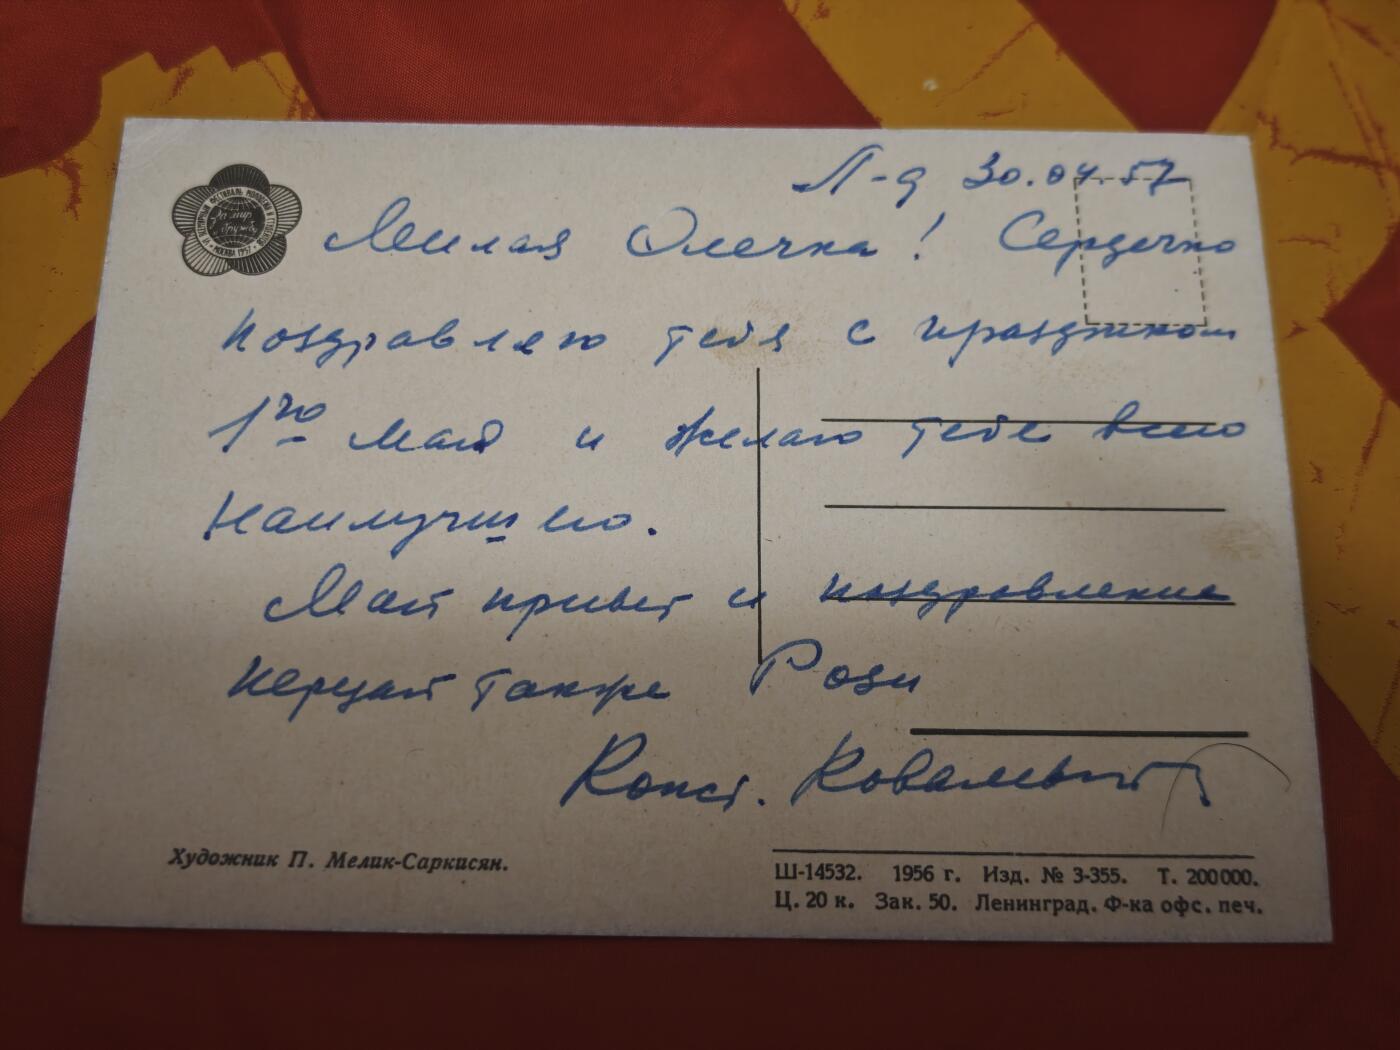 Л-д 30.04.57
VI ВСЕМИРНЫЙ ФЕСТИВАЛЬ МОЛОДЕЖИ И СТУДЕНТОВ • МОСКВА 1957 •
За мир и дружбу
Милая Олечка! Сердечно
поздравляю тебя с праздником
1го мая и желаю тебе всего
наилучшего.
Мой привет и поздравление
передай также Рози
Конст. Ковалевый
Художник П. Мелик-Саркисян.
Ш-14532. 1956 г. Изд. № 3-355. Т. 200000.
Ц. 20 к. Зак. 50. Ленинград. Ф-ка офс. печ.